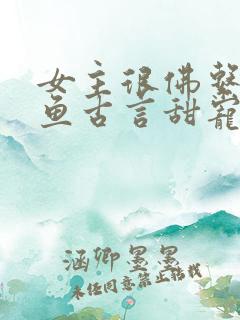 女主很佛系咸
鱼古言甜宠
涵卿墨墨
未经同意禁止转载